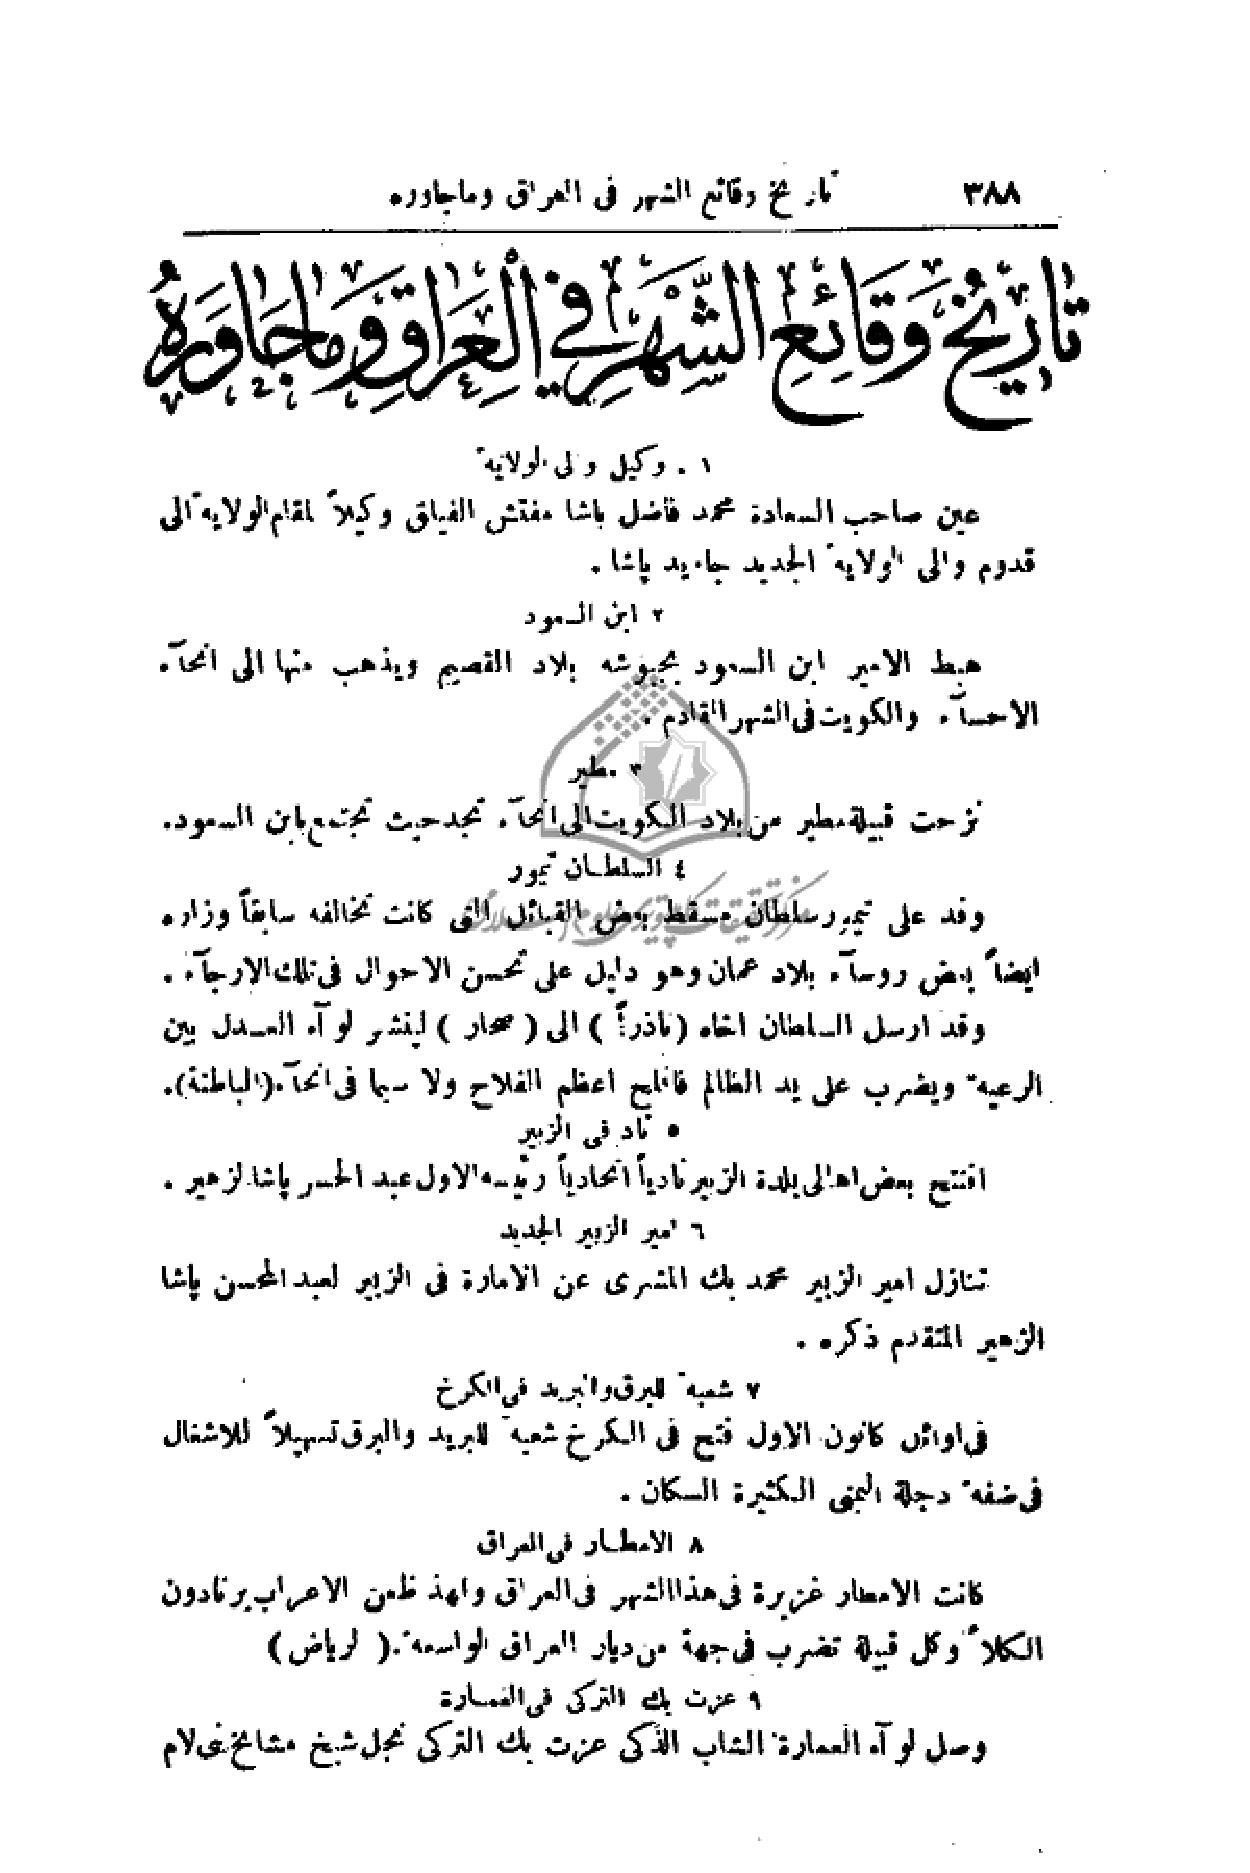 ٣٨٨
تاريخ وقائع الشهر فى العراق وماجاوره
تَارِيْخُ وَقَائِعِ الشَّهْرِ فِي الْعِرَاقِ وَمَا جَاوَرَهُ
١ . وكيل والى الولاية
عين صاحب السعادة محمد فاضل باشا مفتش الفيالق وكيلاً لمقام الولاية الى
قدوم والى الولاية الجديد جاويد پاشا .
٢ ابن السعود
هبط الامير ابن السعود بجيوشه بلاد القصيم ويذهب منها الى انحآء
الاحسآء والكويت فى الشهر القادم .
٣ مطير
نزحت قبيلة مطير من بلاد الكويت الى انحآء نجد حيث تجتمع بابن السعود.
٤ السلطان تيمور
وفد على تيمور سلطان مسقط بعض القبائل التى كانت تخالفه سابقاً وزاره
ايضاً بعض روسآء بلاد عمان وهو دليل على تحسن الاحوال فى تلك الارجآء .
وقد ارسل السلطان اخاه (نادراً) الى ( صحار ) لينشر لوآء العدل بين
الرعية ويضرب على يد الظالم فافلح اعظم الفلاح ولا سيما فى انحآء (الباطنة).
٥ ناد فى الزبير
افتتح بعض اهالى بلدة الزبير نادياً اتحادياً رئيسه الاول عبد المحسن پاشا الزهير .
٦ امير الزبير الجديد
تنازل امير الزبير محمد بك المشرى عن الامارة فى الزبير لعبد المحسن پاشا
الزهير المتقدم ذكره .
٧ شعبة للبرق والبريد فى الكرخ
فى اوائل كانون الاول فتح فى الكرخ شعبة للبريد والبرق تسهيلاً للاشغال
فى ضفة دجلة اليمنى الكثيرة السكان .
٨ الامطار فى العراق
كانت الامطار غزيرة فى هذا الشهر فى العراق ولهذا ظعن الاعراب يرتادون
الكلأ وكل قبيلة تضرب فى جهة من ديار العراق الواسعة .( الرياض )
٩ عزت بك التركى فى العمارة
وصل لوآء العمارة الشاب الذكى عزت بك التركى نجل شيخ مشايخ بنى لام